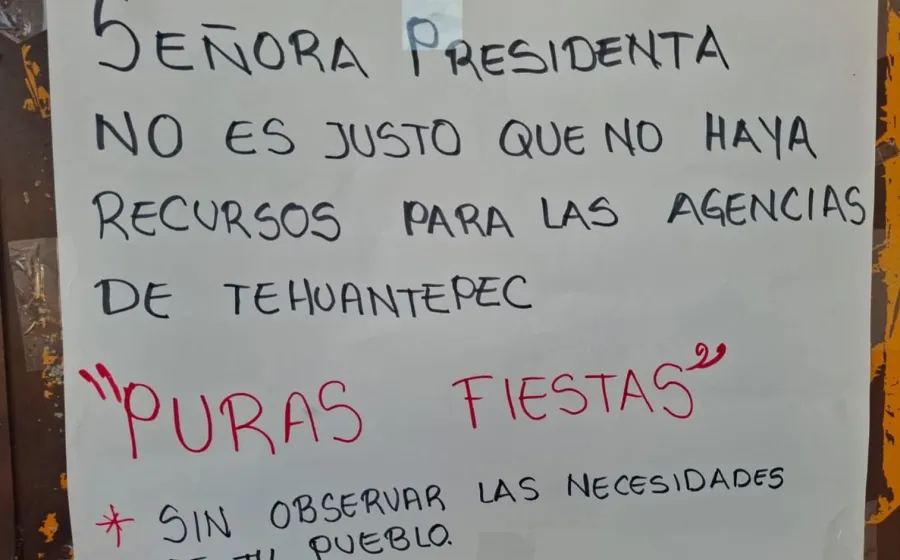 SEÑORA PRESIDENTA
NO ES JUSTO QUE NO HAYA
RECURSOS PARA LAS AGENCIAS
DE TEHUANTEPEC
"PURAS FIESTAS"
* SIN OBSERVAR LAS NECESIDADES
DE TU PUEBLO.